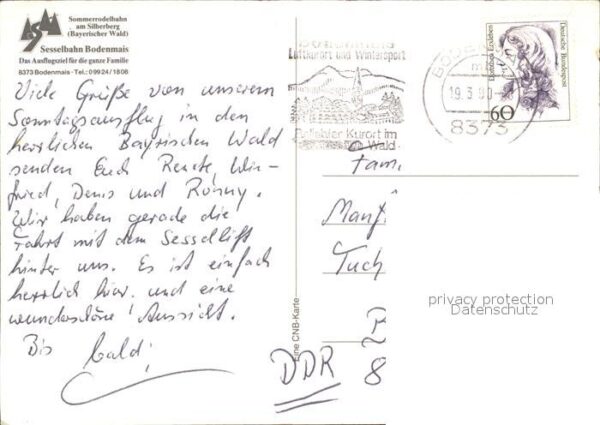 Sommerrodelbahn
am Silberberg
(Bayerischer Wald)
Sesselbahn Bodenmais
Das Ausflugsziel für die ganze Familie
8373 Bodenmais · Tel.: 0 99 24 / 18 08
Viele Grüße von unserem
Sonntagsausflug in den
herrlichen Bayrischen Wald
senden Euch Renate, Win-
fried, Denis und Ronny.
Wir haben gerade die
Fahrt mit dem Sessellift
hinter uns. Es ist einfach
herrlich hier und eine
wunderschöne Aussicht.
Bis bald!
Eine CNB-Karte
Luftkurort und Wintersport
Kurort im
Wald
19.3.90
8373
Dorothea Erxleben
Deutsche Bundespost
60
Fam.
Manf
Tuch
DDR
8
privacy protection
Datenschutz